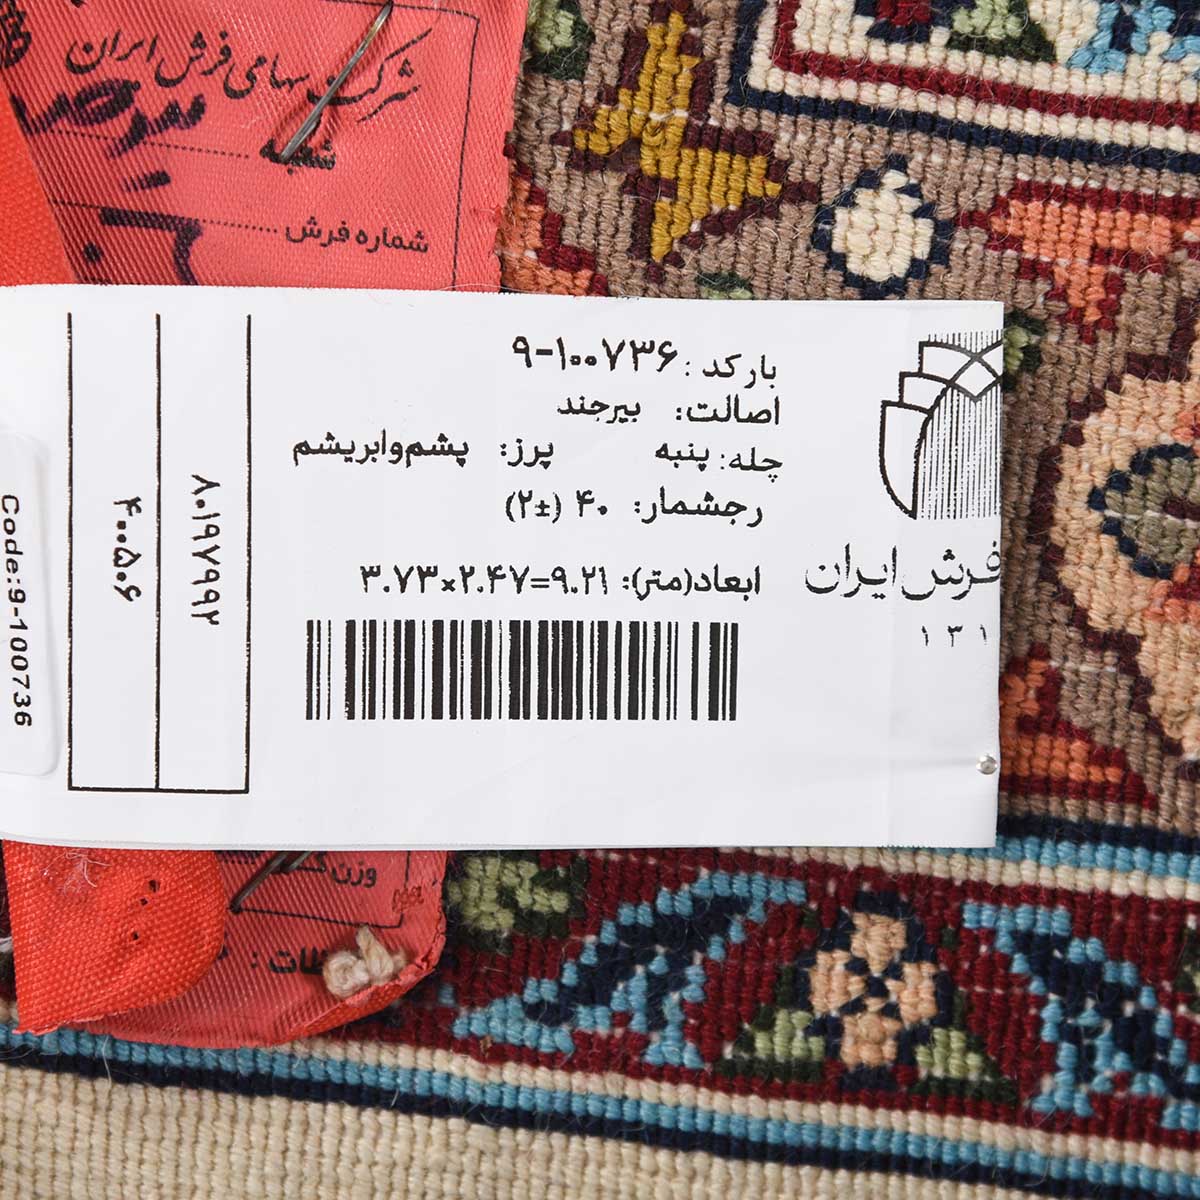 شرکت سهامی فرش ایران
شعبه
شماره فرش
بارکد: ۹-۱۰۰۷۳۶
اصالت: بیرجند
چله: پنبه پرز: پشم‌وابریشم
رجشمار: ۴۰ (±۲)
ابعاد(متر): ۳.۷۳×۲.۴۷=۹.۲۱
فرش ایران
۱۳۱
۸۰۱۹۷۹۹۲
۴۰۰۵۰۶
Code:9-100736